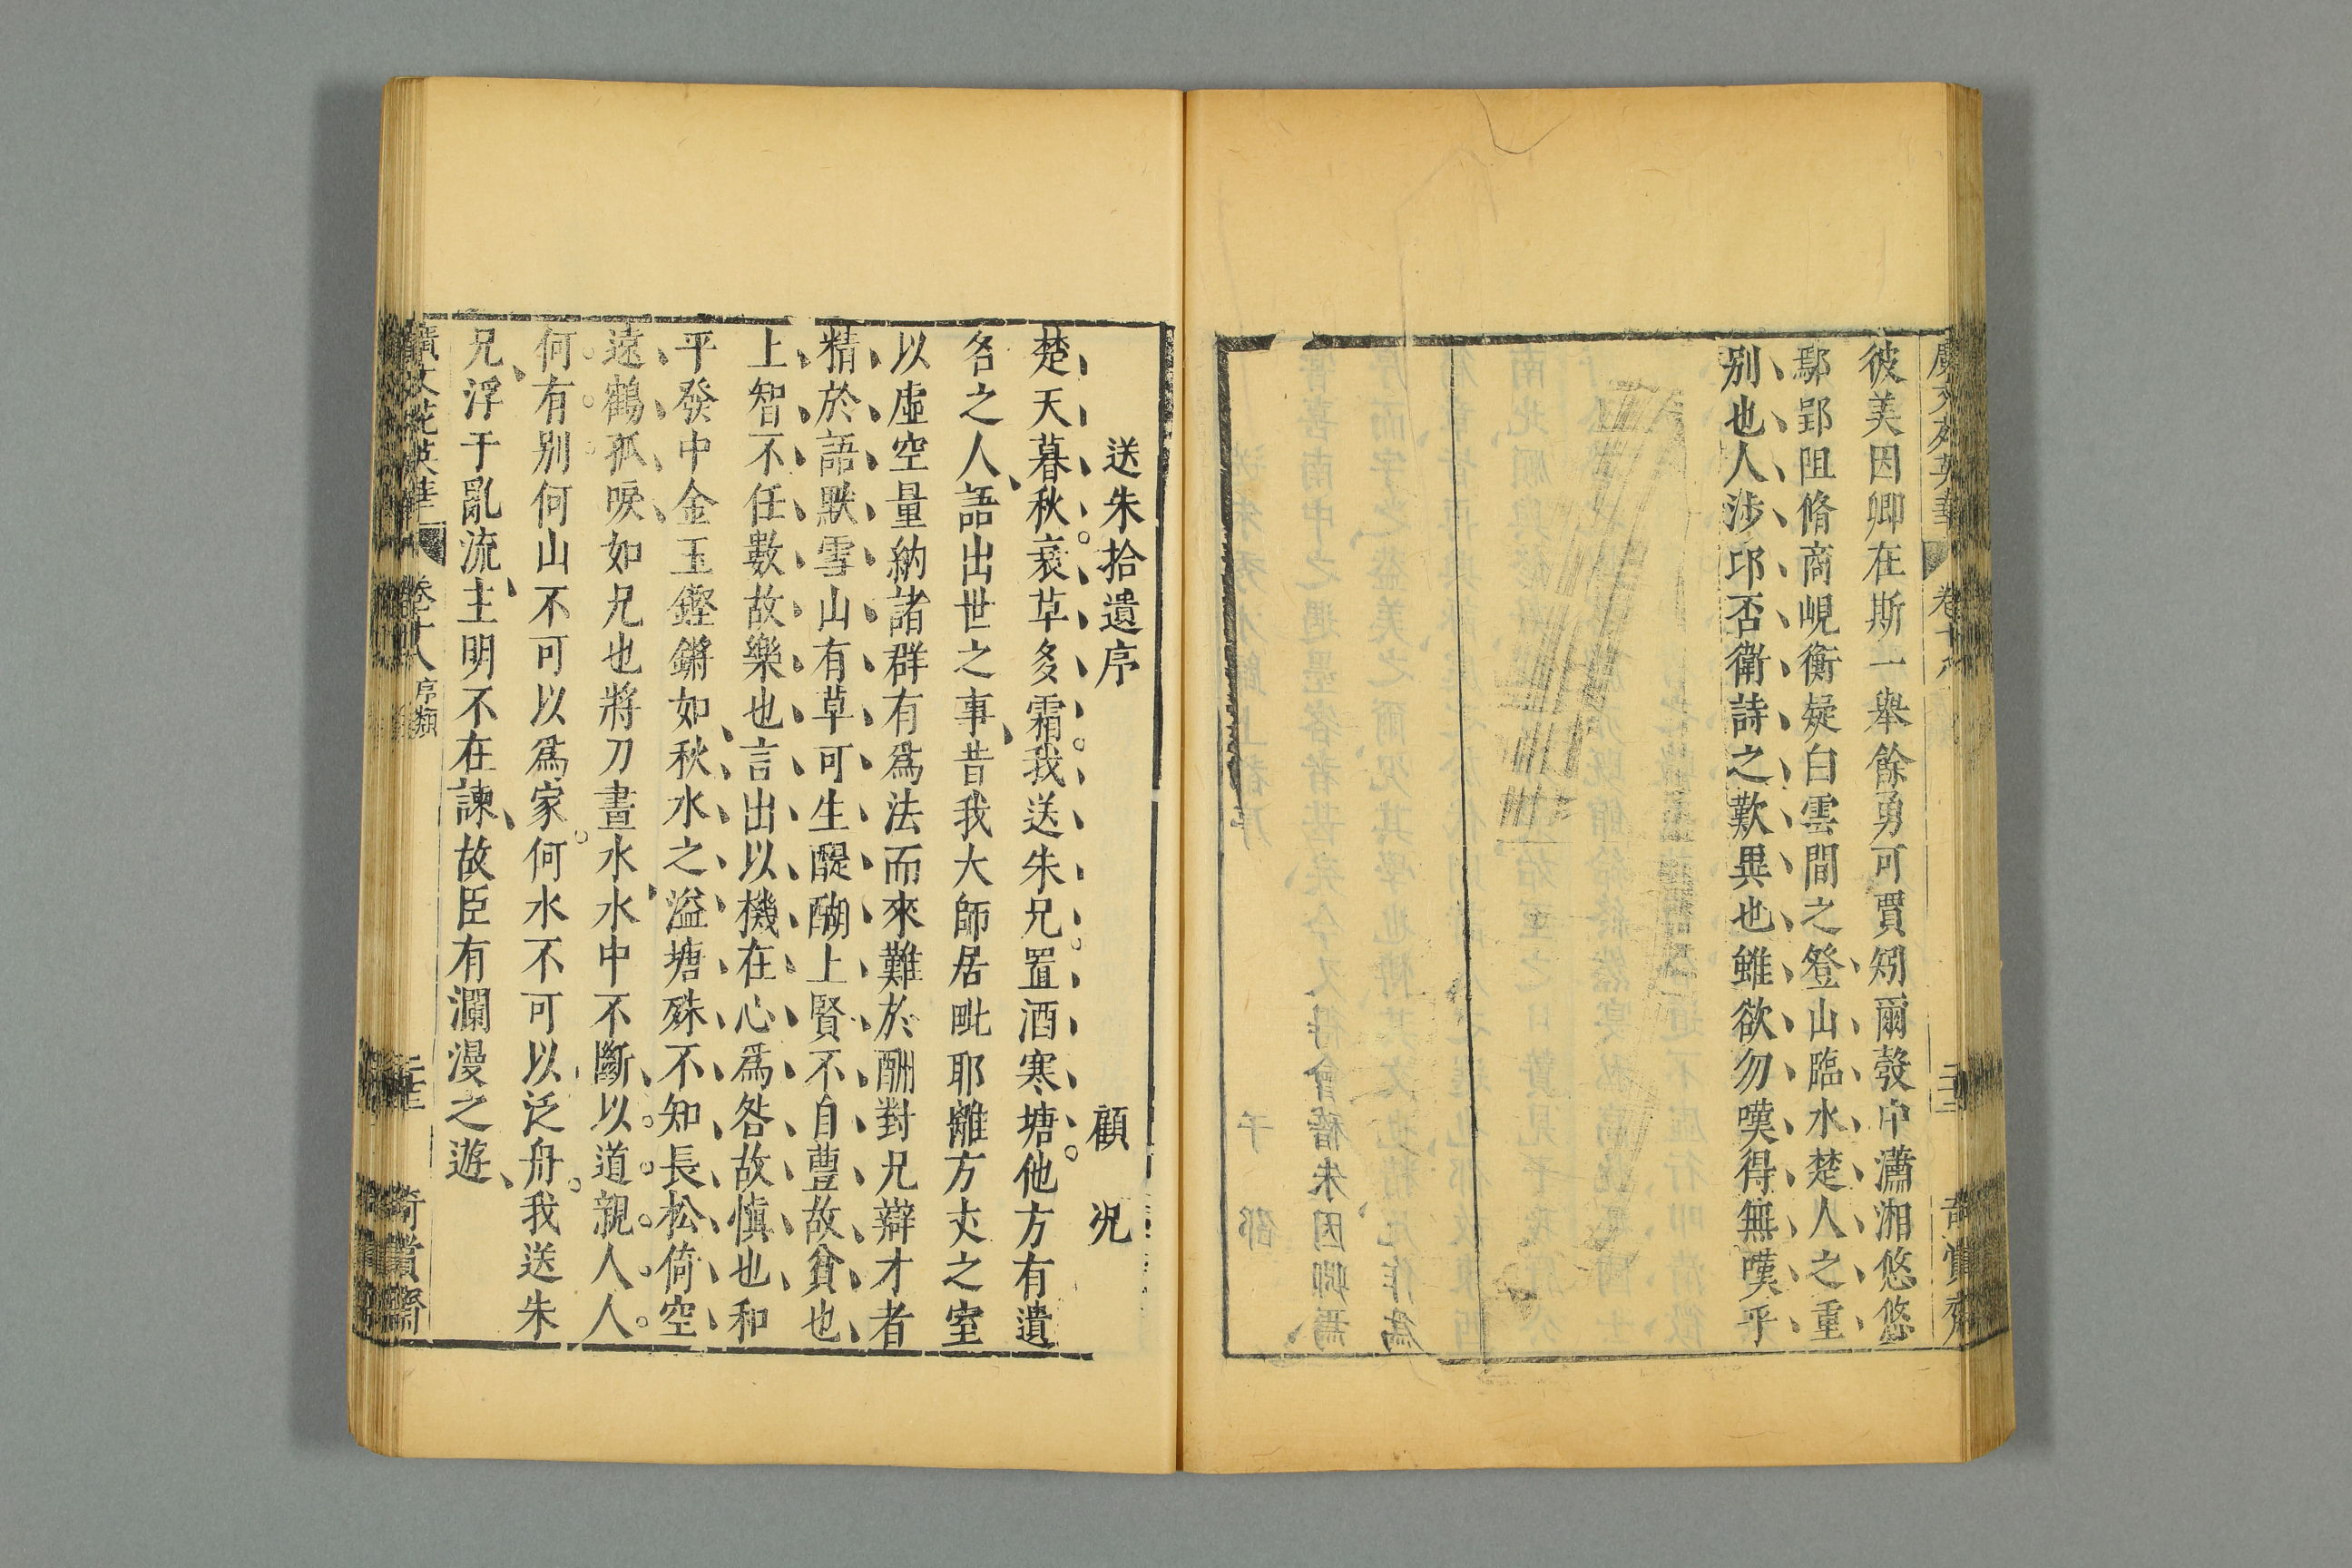 彼美因卿在斯一舉餘勇可賈矧爾發中瀟湘悠悠
鄢郢阻脩商峴衡疑白雲間之登山臨水楚人之重
别也人涉卭否衛詩之歎異也雖欲勿嘆得無嘆乎
送朱拾遺序
顧况
楚天暮秋衰草多霜我送朱兄置酒寒塘他方有遺
名之人語出世之事昔我大師居毗耶離方丈之室
以虛空量納諸群有爲法而來難於酬對兄辯才者
精於語默雪山有草可生醍醐上賢不自豊故貧也
上智不任數故樂也言出以機在心爲咎故愼也和
平發中金玉鏗鏘如秋水之溢塘殊不知長松倚空
遠鶴孤唳如兄也將刀畫水水中不斷以道親人人
何有别何山不可以爲家何水不可以泛舟我送朱
兄浮于亂流主明不在諫故臣有瀾漫之遊
廣文苑英華 卷十八 序類 奇賞齋